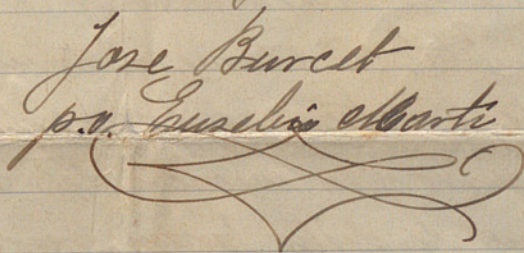 Jose Burcet
p.o. Eusebio Marti